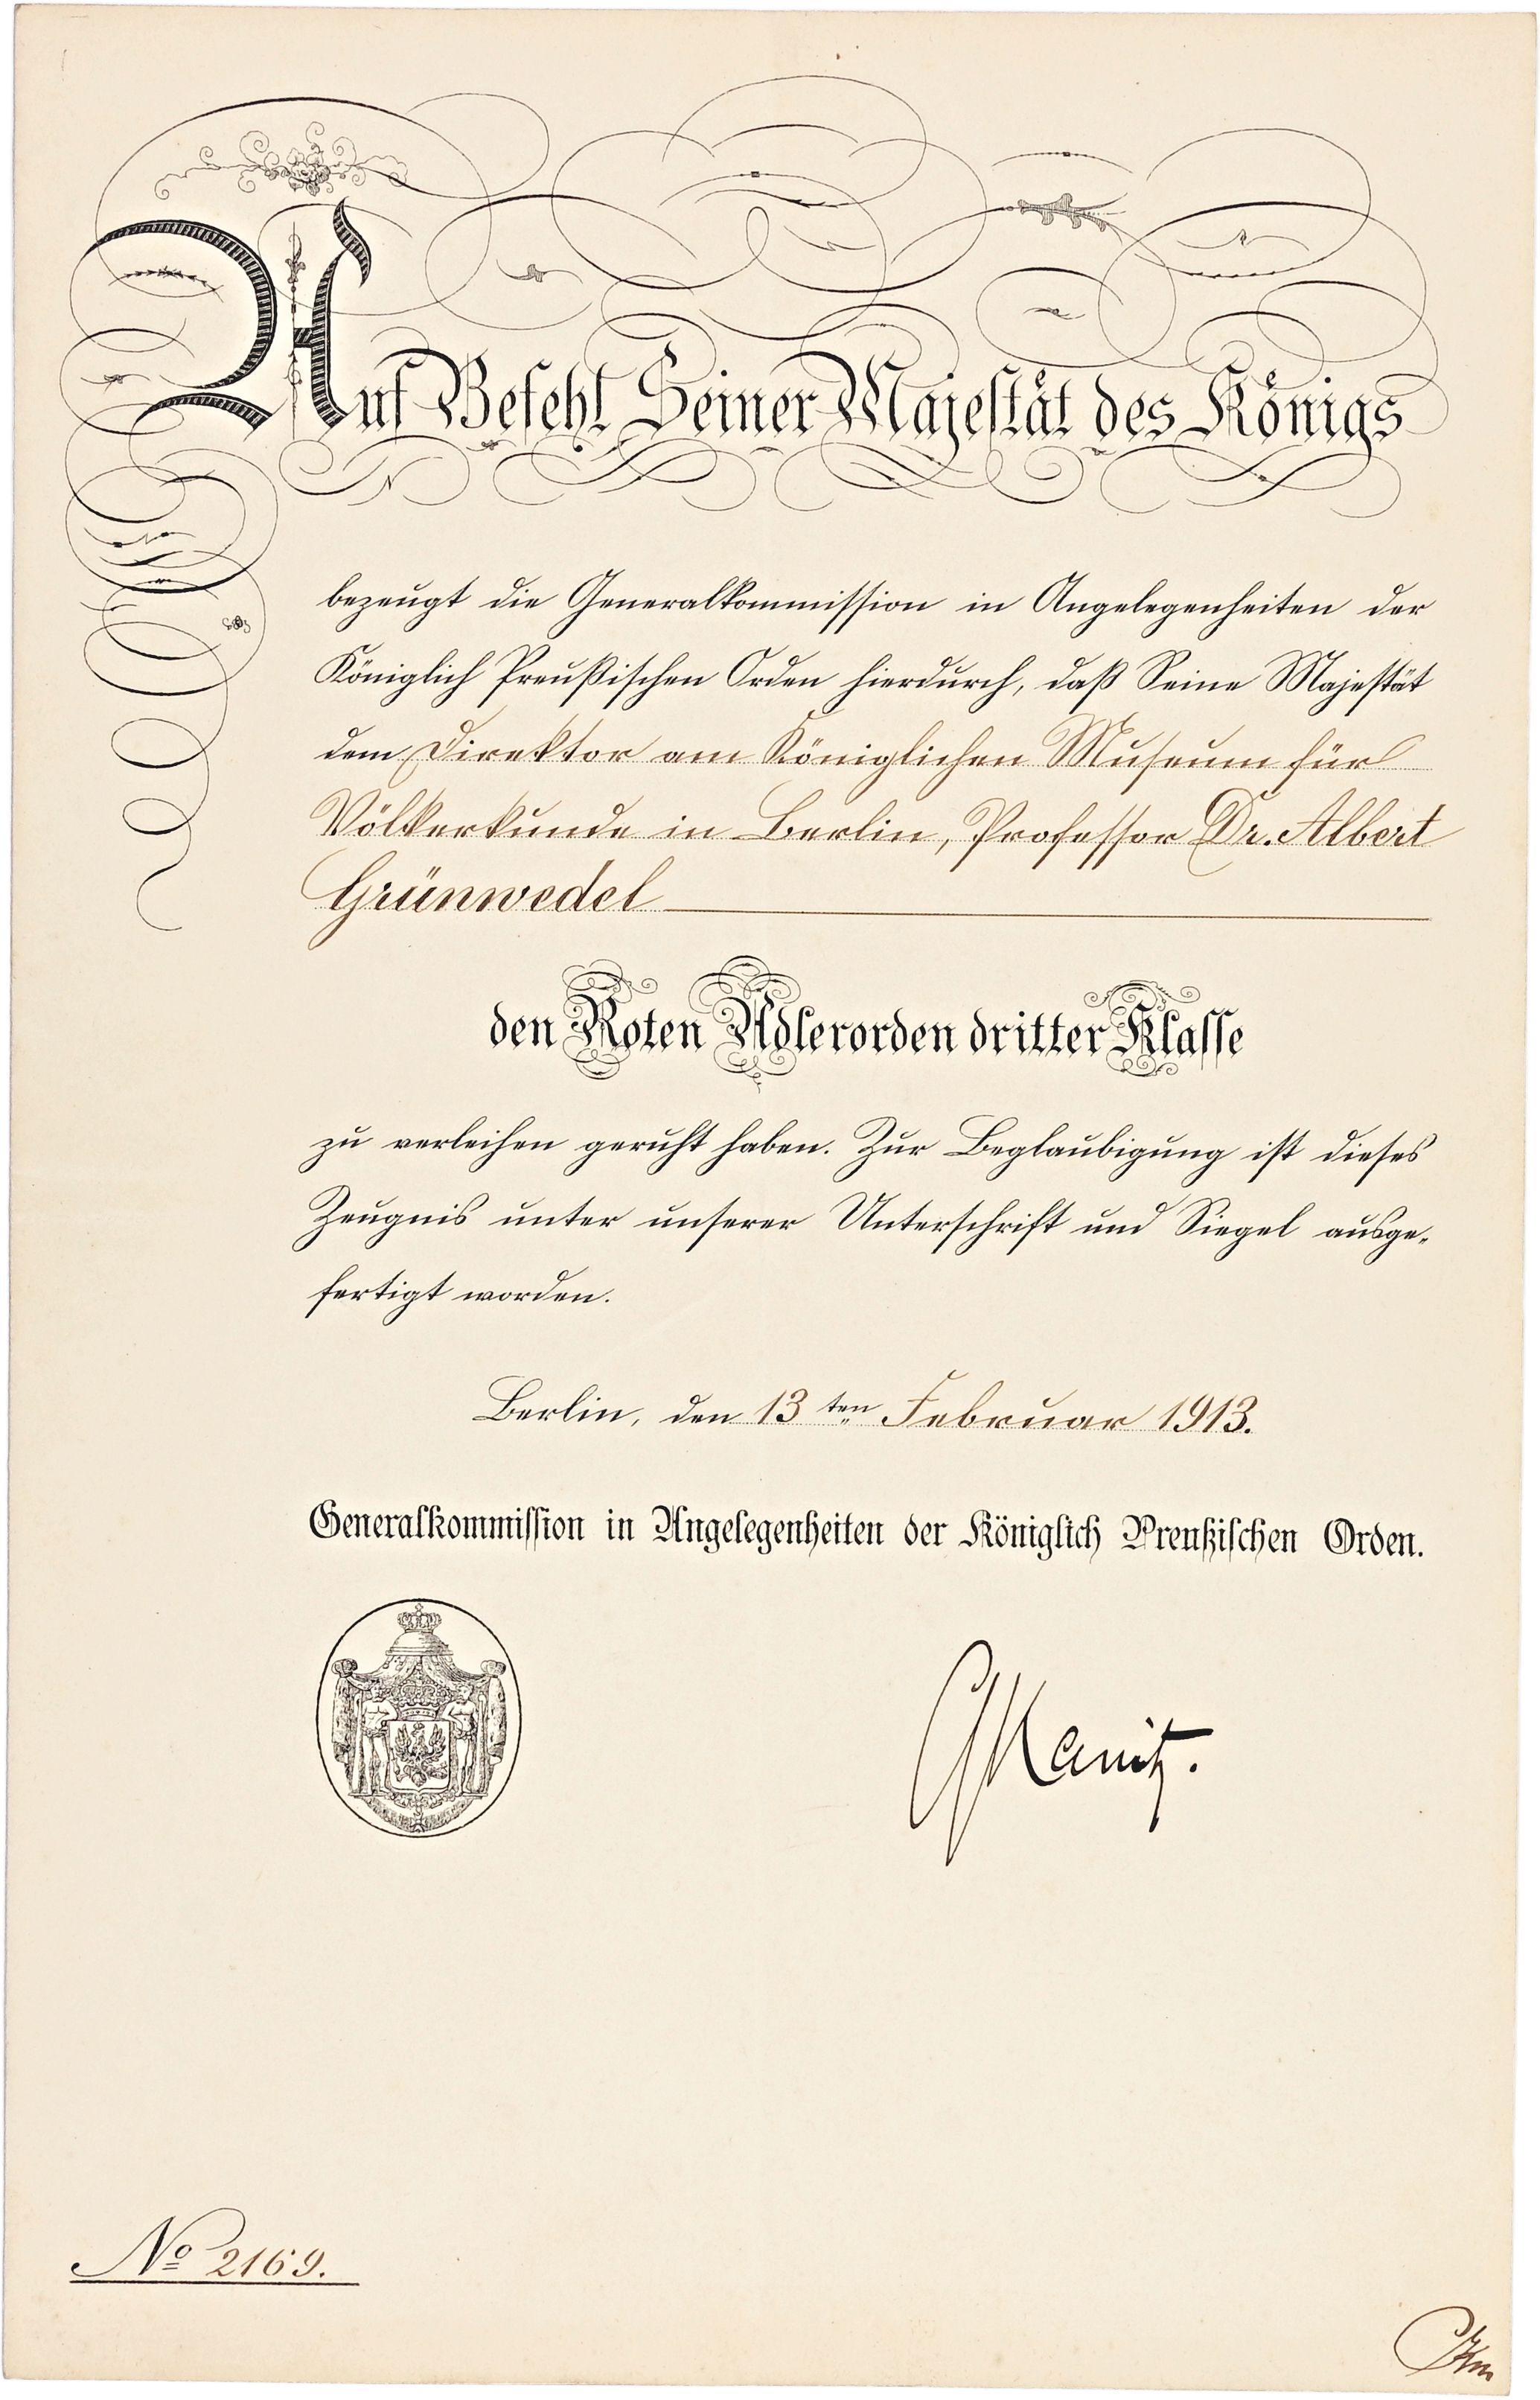 Auf Befehl Seiner Majestät des Königs
bezeugt die Generalkommission in Angelegenheiten der
Königlich Preußischen Orden hierdurch, daß Seine Majestät
dem Direktor am Königlichen Museum für
Völkerkunde in Berlin, Professor Dr. Albert
Grünwedel
den Roten Adlerorden dritter Klasse
zu verleihen geruht haben. Zur Beglaubigung ist dieses
Zeugnis unter unserer Unterschrift und Siegel ausge-
fertigt worden.
Berlin, den 13ten Februar 1913.
Generalkommission in Angelegenheiten der Königlich Preußischen Orden.
Kanitz.
No 2169.